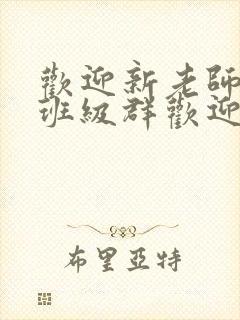 歡迎新老師
班級群歡迎
布里亞特